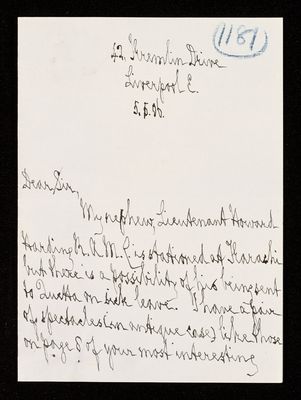 1181
42. Kremlin Drive
Liverpool E.
5.5.36.
Dear Sir,
My nephew, Lieutenant Howard
Harding R.A.M.C is stationed at Karachi
but there is a possibility of his being sent
to Quetta on sick leave. I have a pair
of spectacles (in antique case) like those
on page 5 of your most interesting